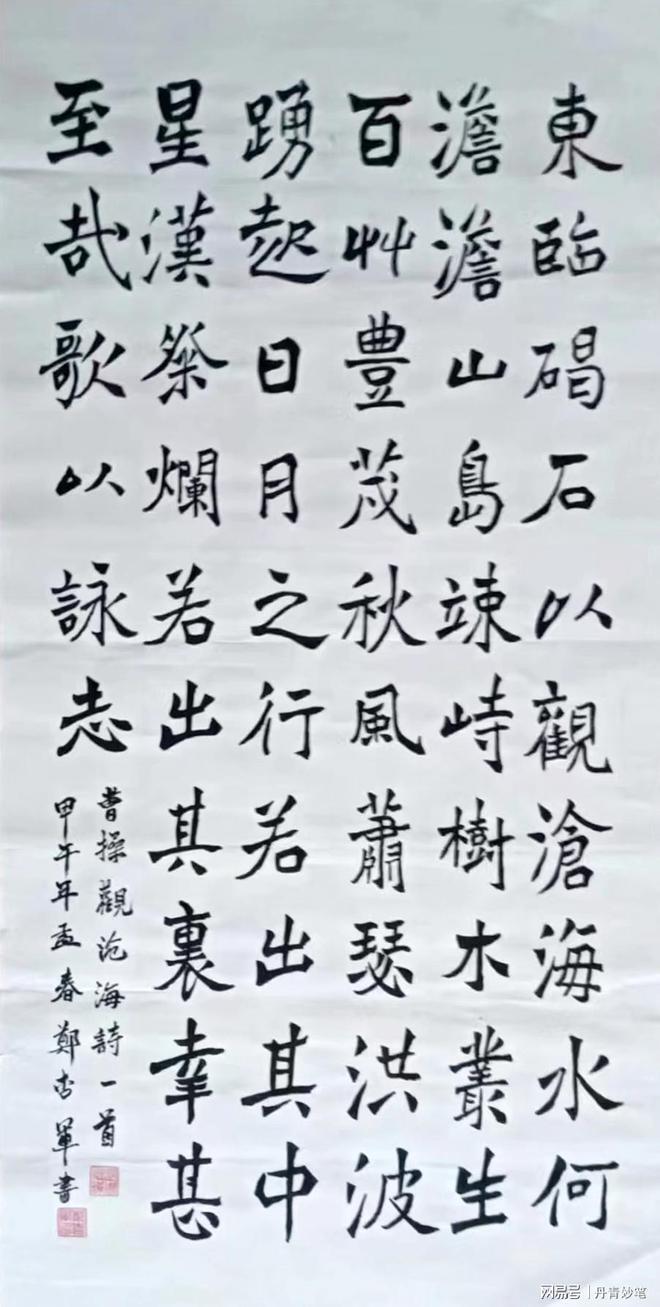 東臨碣石以觀滄海水何
澹澹山島竦峙樹木叢生
百艸豊茂秋風蕭瑟洪波
踴起日月之行若出其中
星漢粲爛若出其裏幸甚
至哉歌以詠志
曹操觀滄海詩一首
甲午年孟春鄭書
网易号 | 丹青妙笔